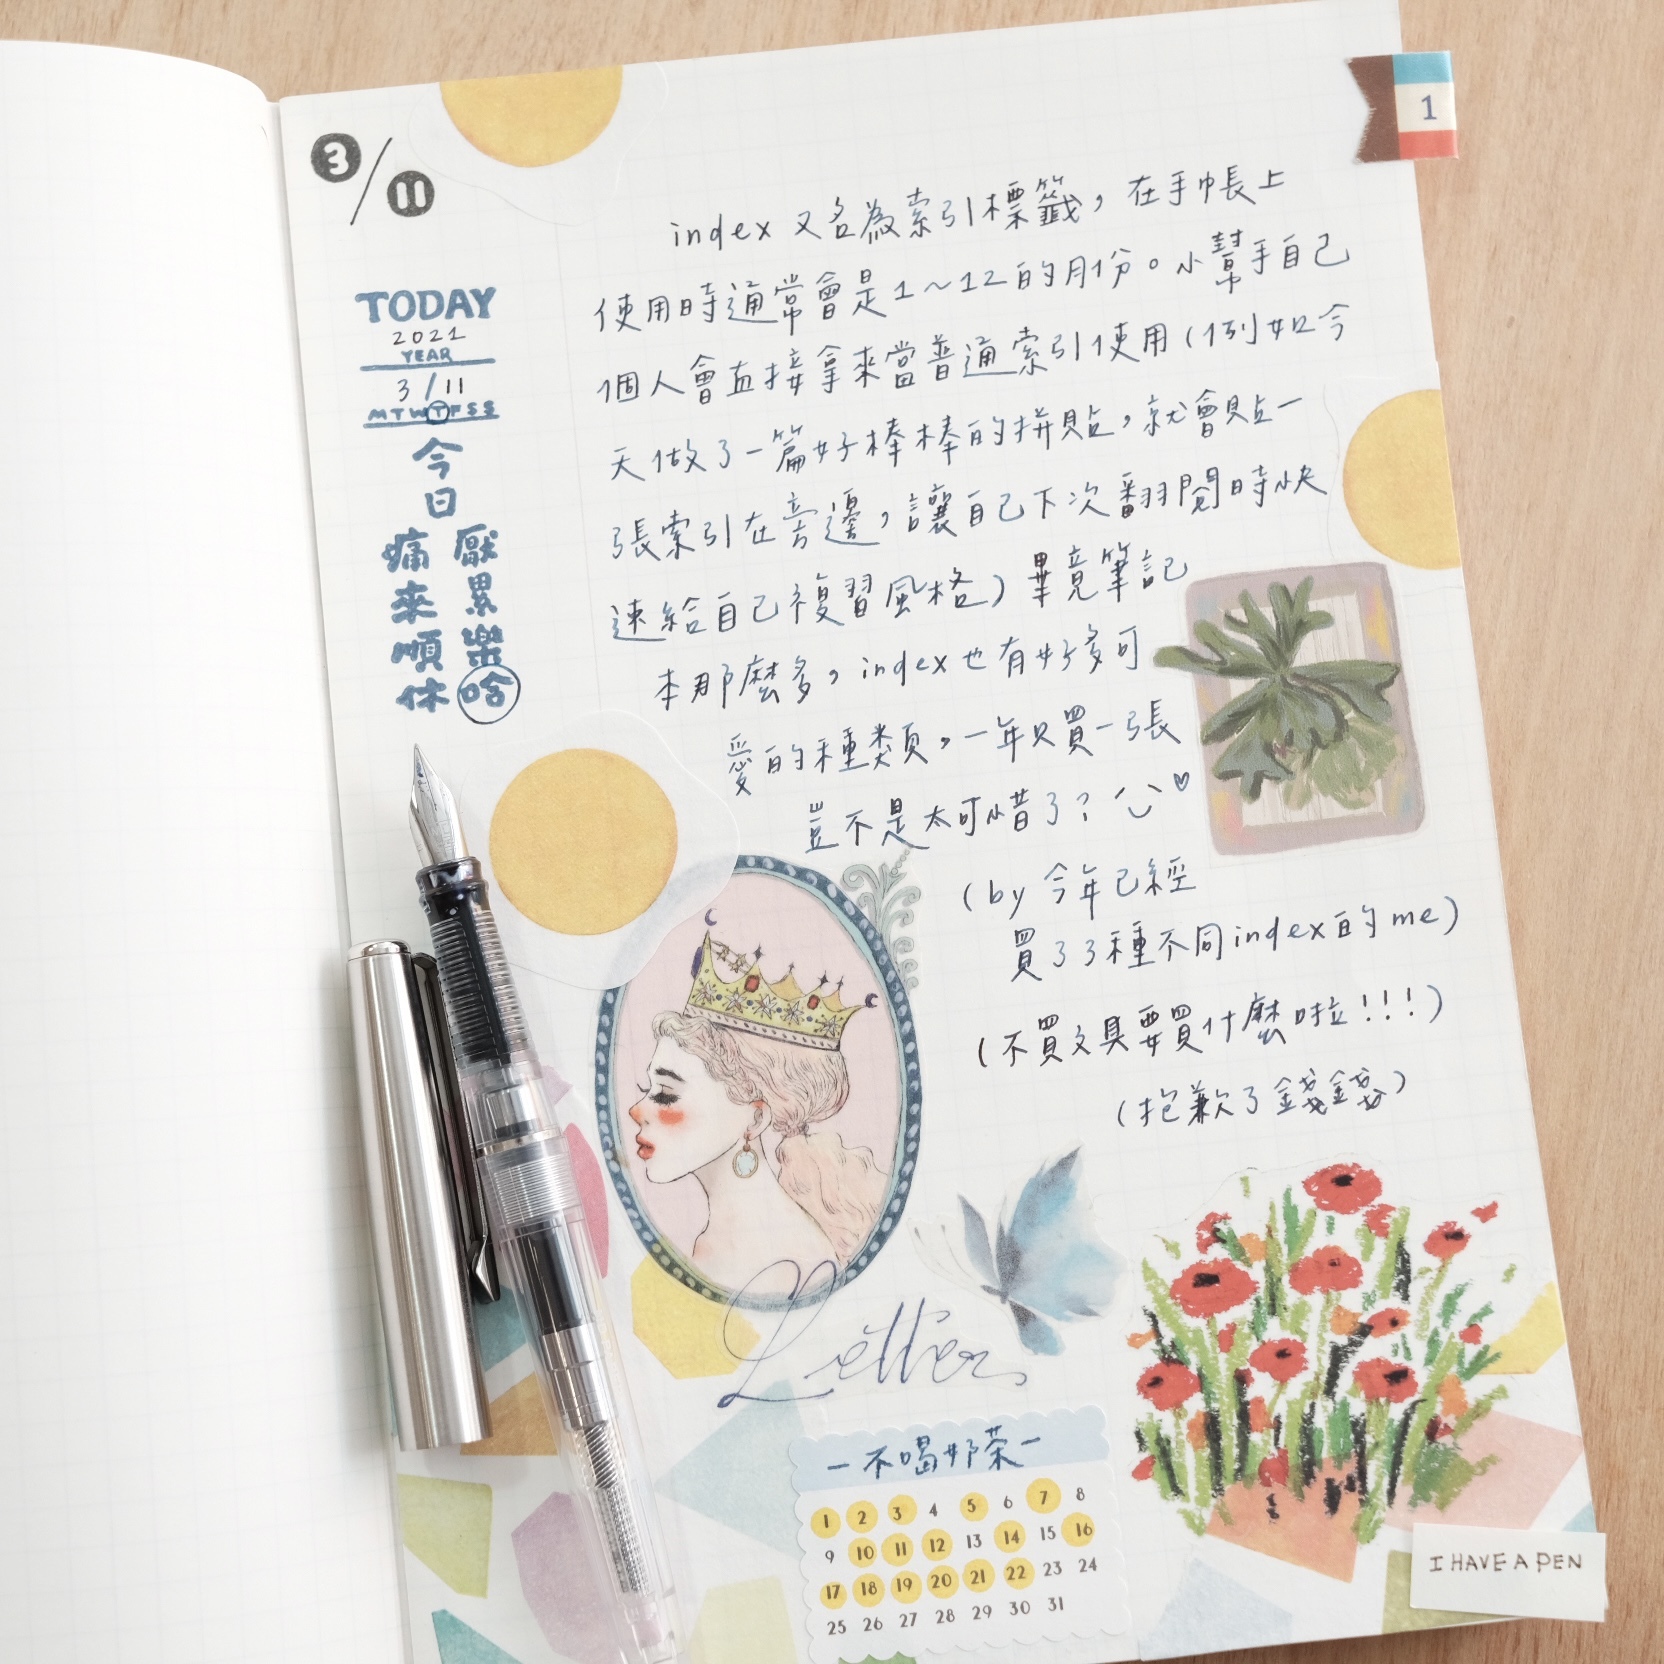 3/11
TODAY
2021
YEAR
3/11
MTWTFSS
今日
厭累樂哈
痛來順休
1
index 又名為索引標籤，在手帳上
使用時通常會是1～12的月份。小幫手自己
個人會直接拿來當普通索引使用（例如今
天做了一篇好棒棒的拼貼，就會貼一
張索引在旁邊，讓自己下次翻閱時快
速給自己複習風格）畢竟筆記
本那麼多，index也有好多可
愛的種類，一年只買一張
豈不是太可惜了？
（by 今年已經
買了3種不同index的me）
（不買文具要買什麼啦！！！）
（抱歉了錢錢）
Letter
－不喝奶茶－
1 2 3 4 5 6 7 8
9 10 11 12 13 14 15 16
17 18 19 20 21 22 23 24
25 26 27 28 29 30 31
I HAVE A PEN